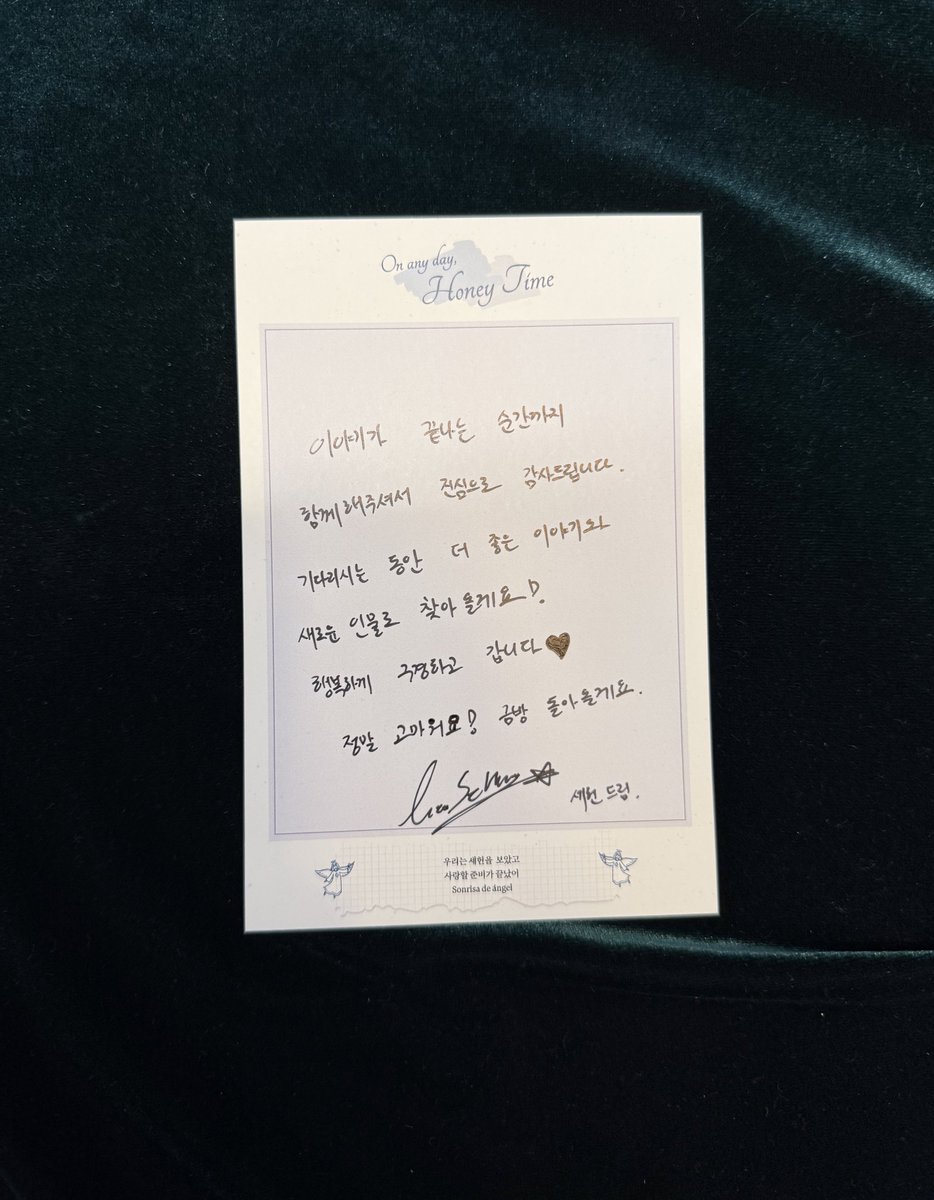 On any day,
Honey Time
이야기가 끝나는 순간까지
함께해주셔서 진심으로 감사드립니다.
기다리시는 동안 더 좋은 이야기와
새로운 인물로 찾아올게요!
행복하게 구경하고 갑니다♥
정말 고마워요! 금방 돌아올게요.
세헌 드림.
우리는 세헌을 보았고
사랑할 준비가 끝났어
Sonrisa de ángel